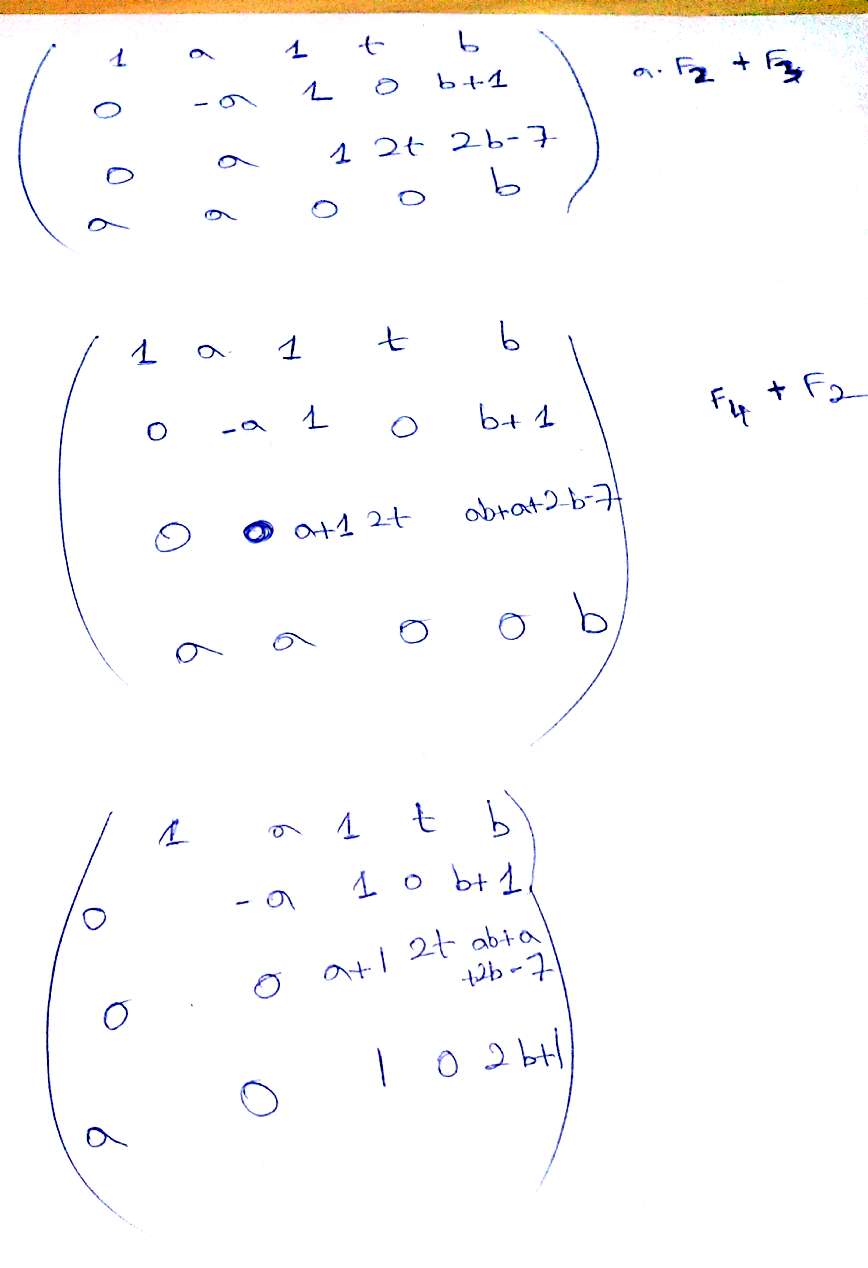 1 a 1 t b
0 -a 1 0 b+1 a. F2 + F3
0 a 1 2t 2b-7
a a 0 0 b
1 a 1 t b
0 -a 1 0 b+1 F4 + F2
0 0 a+1 2t ab+a+2b-7
a a 0 0 b
1 a 1 t b
0 -a 1 0 b+1
0 0 a+1 2t ab+a
+2b-7
a 0 1 0 2b+1